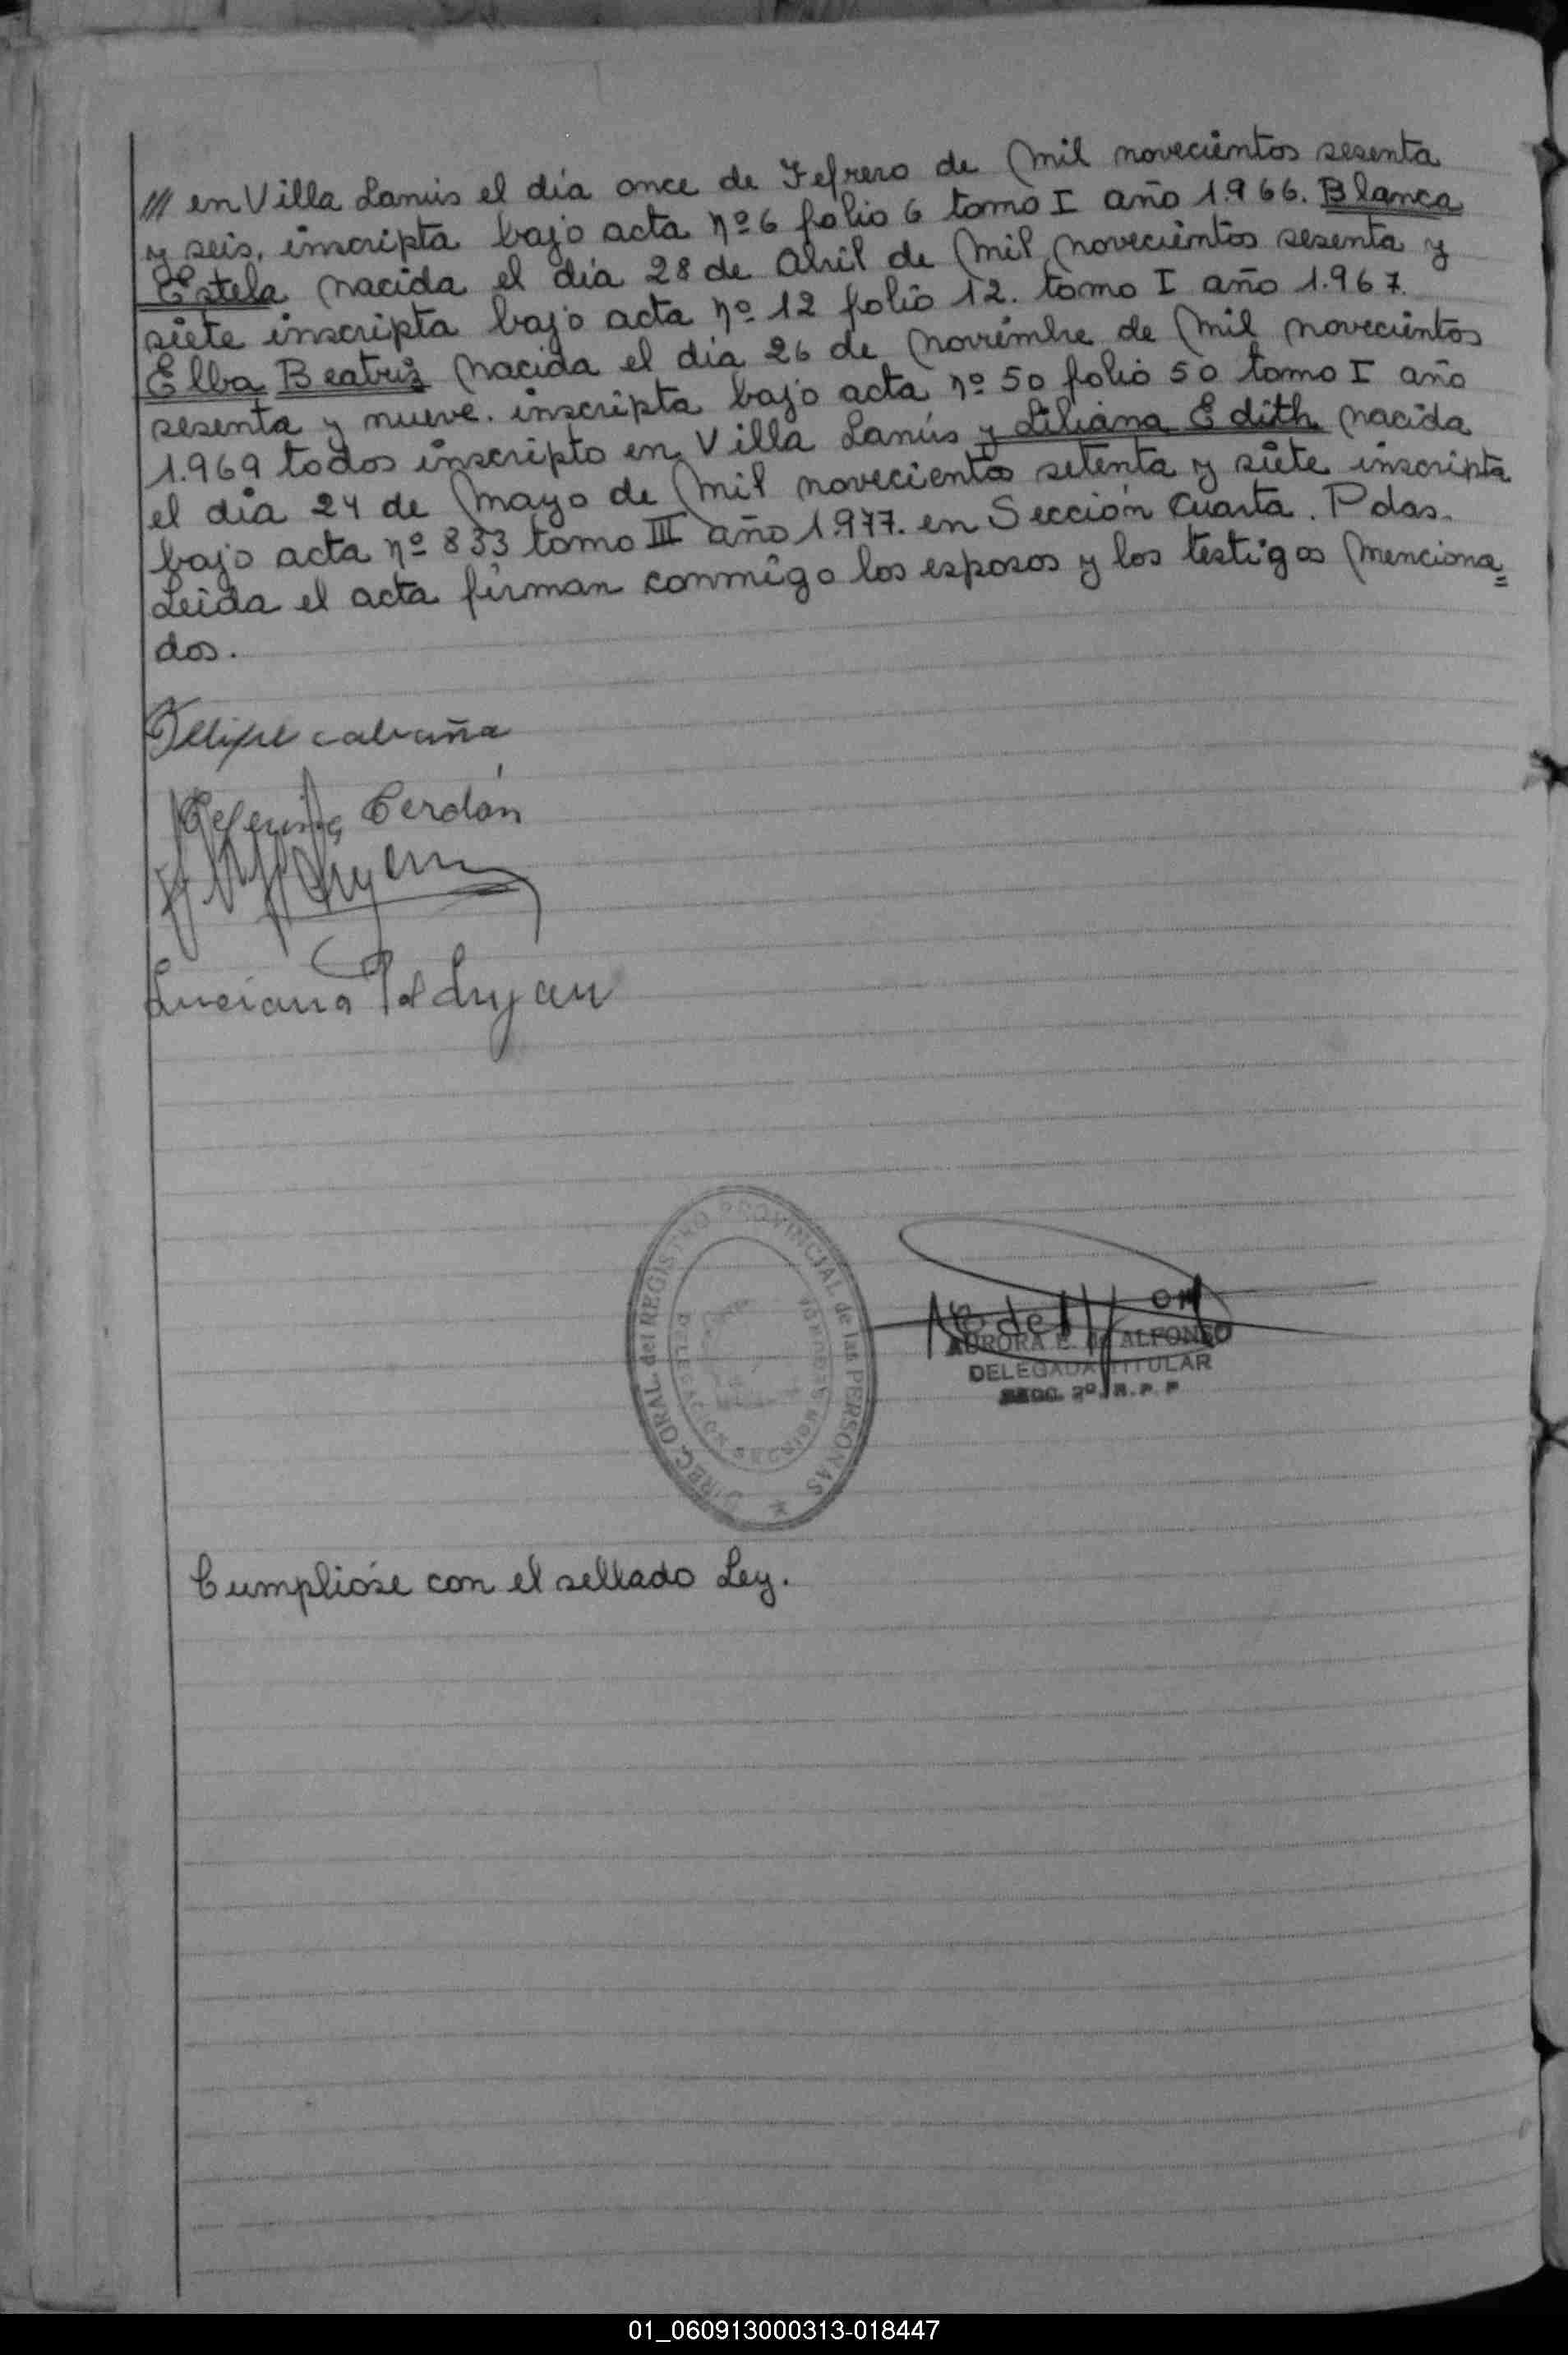 /// en Villa Lanús el día once de Fefrero de Mil novecientos sesenta
y seis, inscripta bajo acta nº 6 folio 6 tomo I año 1.966. Blanca
Estela nacida el día 28 de Abril de Mil novecientos sesenta y
siete inscripta bajo acta nº 12 folio 12. tomo I año 1.967.
Elba Beatriz nacida el día 26 de noviembre de Mil novecientos
sesenta y nueve. inscripta bajo acta nº 50 folio 50 tomo I año
1.969 todos inscripto en Villa Lanús y Liliana Edith nacida
el día 24 de Mayo de Mil novecientos setenta y siete inscripta
bajo acta nº 833 tomo III año 1.977. en Sección Cuarta. Pdas.
Leida el acta firman conmigo los esposos y los testigos Menciona=
dos.
Felipe cabaña
Cerdán
Luciana
DIREC. GRAL. del REGISTRO PROVINCIAL de las PERSONAS
DELEGACION SECCION SEGUNDA
AURORA E. de ALFONSO
DELEGADA TITULAR
SECC. 2º R.P.P
Cumplióse con el sellado Ley.
01_060913000313-018447